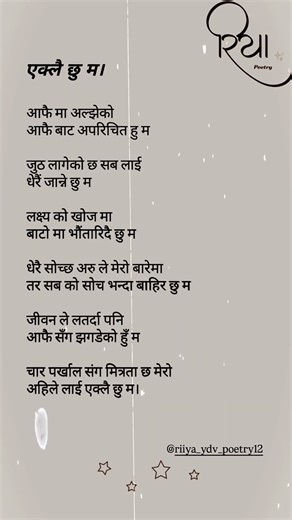 रिया
Poetry
एक्लै छु म।
आफै मा अल्झेको
आफै बाट अपरिचित हु म
जुठ लागेको छ सब लाई
धेरैं जान्ने छु म
लक्ष्य को खोज मा
बाटो मा भौंतारिदै छु म
धेरै सोच्छ अरु ले मेरो बारेमा
तर सब को सोच भन्दा बाहिर छु म
जीवन ले लतर्दा पनि
आफै सँग झगडेको हुँ म
चार पर्खाल संग मित्रता छ मेरो
अहिले लाई एक्लै छु म।
@riiya_ydv_poetry12